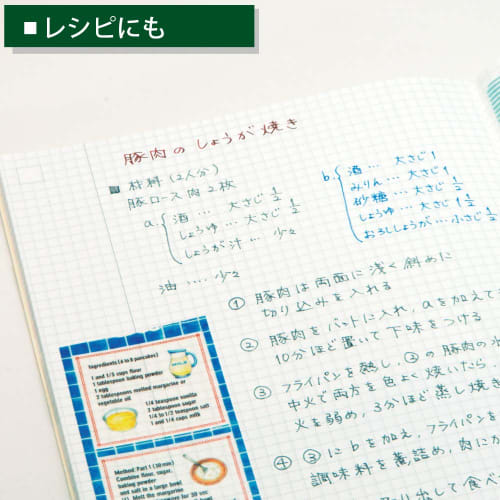 ■ レシピにも
豚肉のしょうが焼き
■ 材料(2人分)
豚ロース肉 2枚
a. 酒 … 大さじ 1/2
しょうゆ … 大さじ 1/2
しょうが汁 … 少々
油 …. 少々
b. 酒 … 大さじ 1
みりん … 大さじ 1
砂糖 … 大さじ 1/2
しょうゆ … 大さじ 1 1/2
おろししょうが … 小さじ 1/2
① 豚肉は両面に浅く斜めに
切り込みを入れる
② 豚肉をバットに入れ、aを加えて
10分ほど置いて下味をつける
③ フライパンを熱し、②の豚肉の
中火で両方を色よく焼いたら
火を弱め、3分ほど蒸し焼き
④ ③にbを加え、フライパンを
調味料を煮詰め、肉に
出して食べ
Ingredients (4 to 8 pancakes)
1 and 1/5 cups flour
1 tablespoon baking powder
1 egg
2 tablespoons melted margarine or
vegetable oil
1/4 teaspoon vanilla
2 tablespoon sugar
1/4 to 1/2 teaspoon salt
1 and 1/4 cups milk
Method: Part 1 (10 min)
Combine flour, sugar,
baking powder
and salt in a large bowl
(1). Melt the margarine
for 30 sec